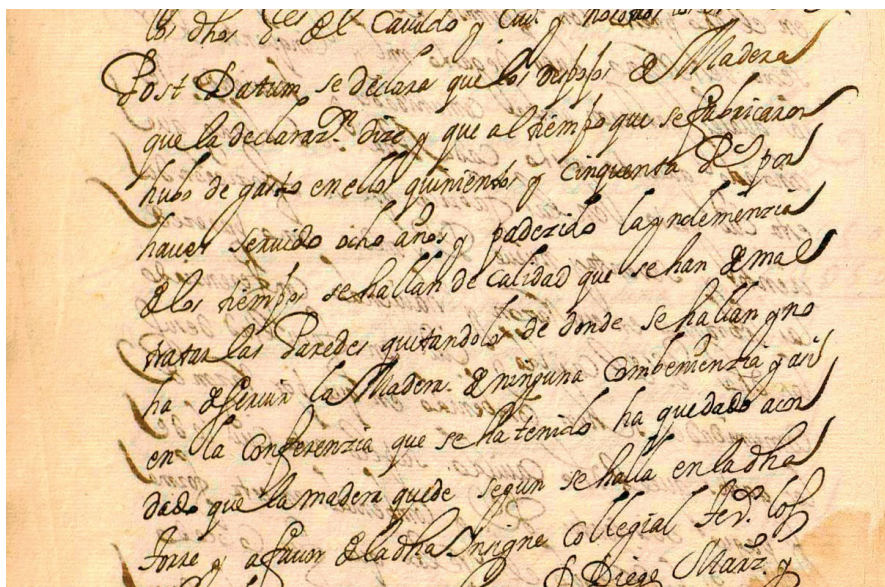 los dhos ss.es del Cauildo y Ciu.d y
Post Datum se declara que los despojos de Madera
que la declaraz.n dize y que al tiempo que se fabricaron
hubo de gasto en ellos quinientos y cinquenta Ds por
hauer seruido ocho años y padezido la ynclemenzia
de los tiempos se hallan de Calidad que se han de mal
tratar las Paredes quitandolos de donde se hallan y no
ha de seruir la Madera de ninguna Combenienzia y asi
en la Conferenzia que se ha tenido ha quedado acor
dado que la madera quede segun se halla en la dha
torre y a fauor de la dha Ynsigne Collegial los
D Diego Marz. y